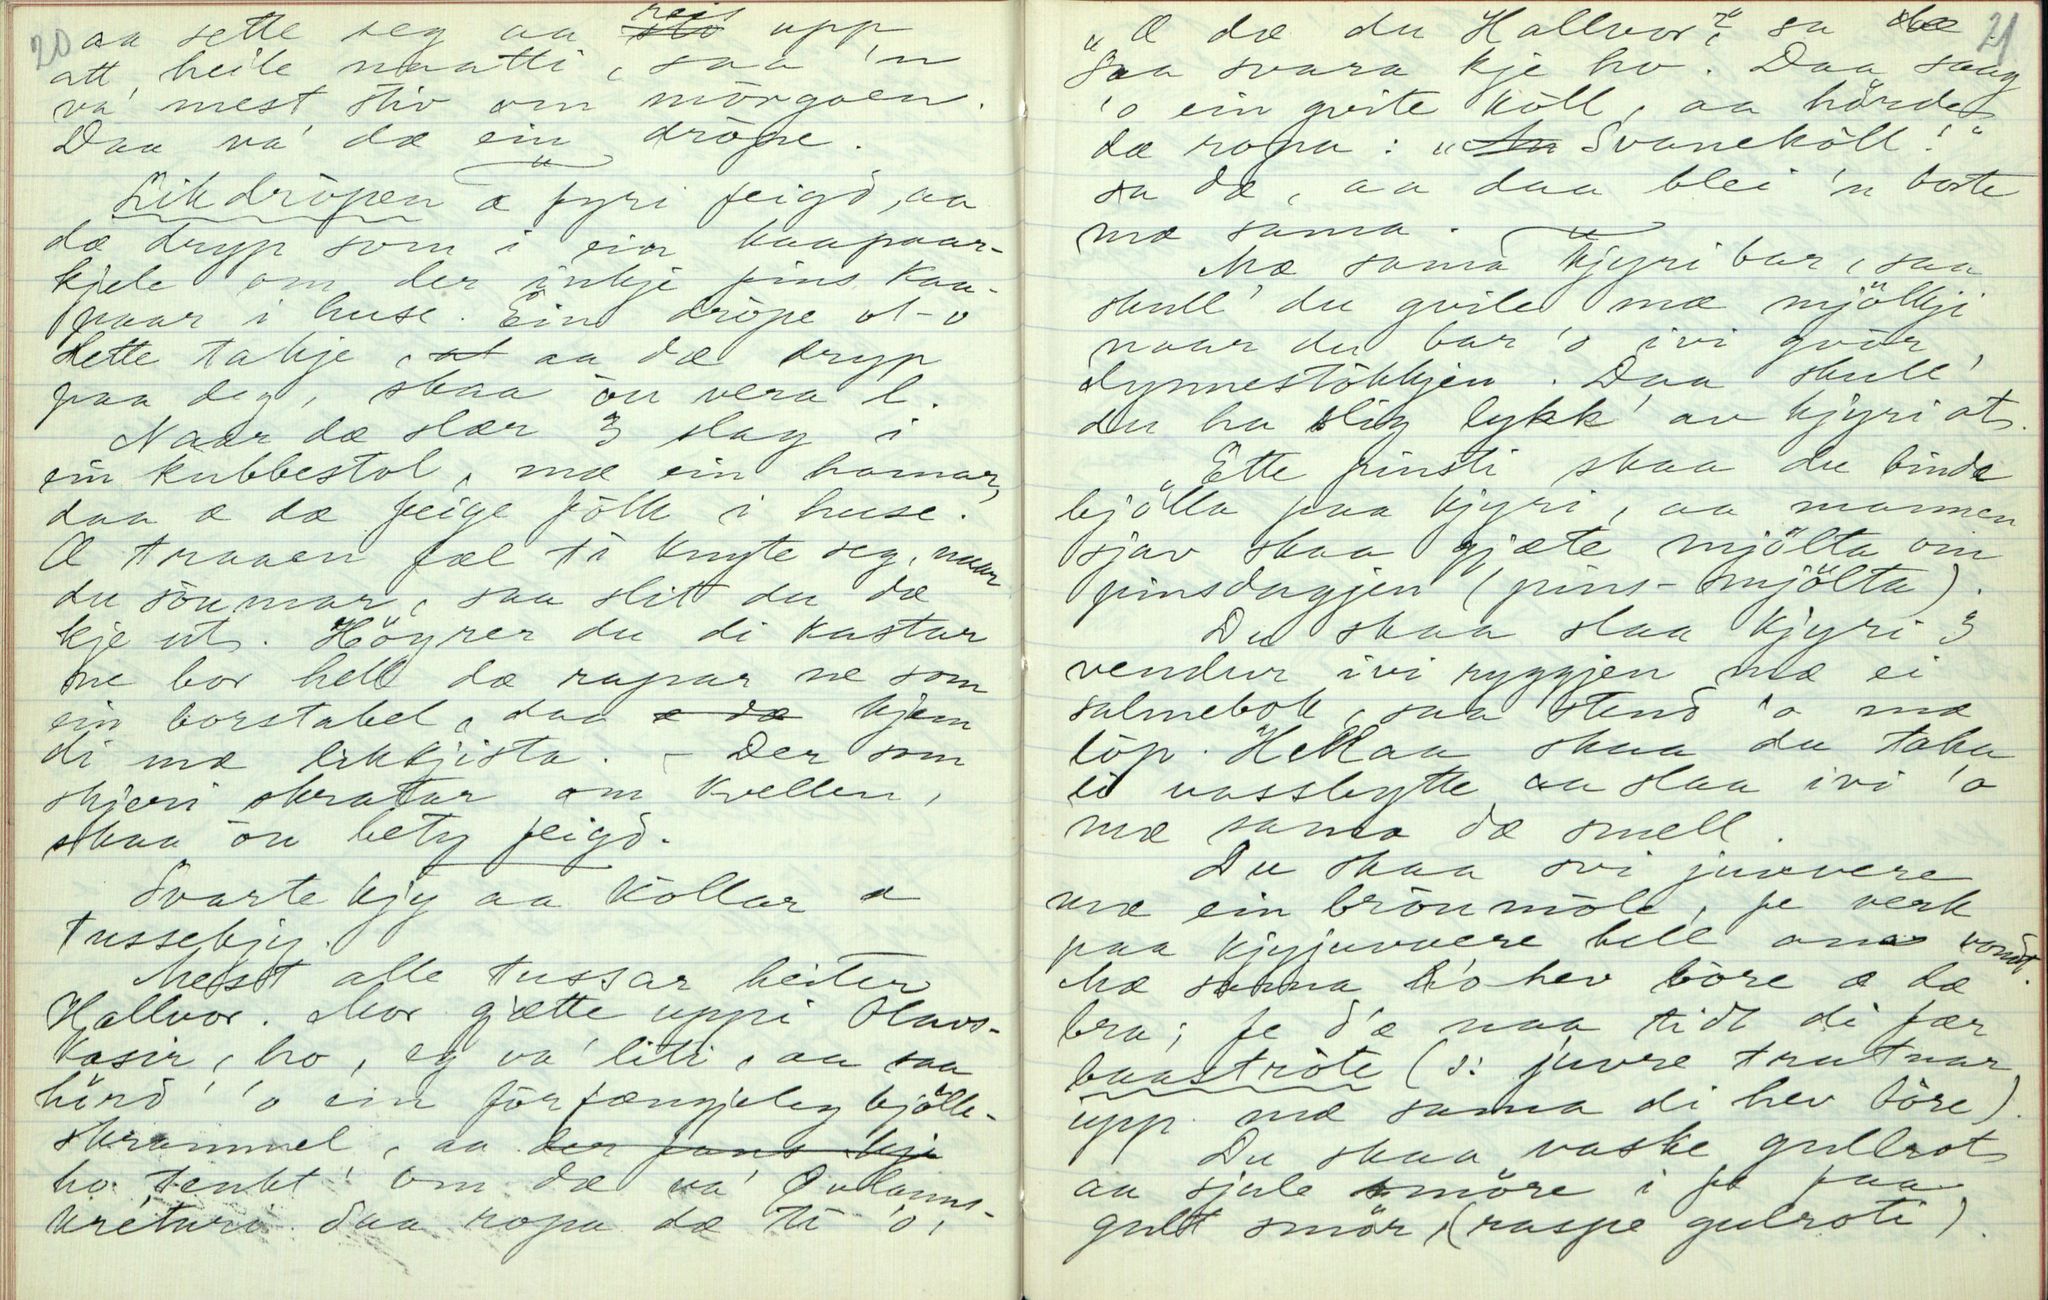 20
aa sette seg aa sto reis upp
att heile naatti, saa 'n
va' mest stiv om mòrgoen.
Daa va' dæ ein dròpe.
Likdròpen æ fyri feigd, aa
dæ dryp som i ein kaapaar-
kjele om der inkje fins kaa-
paar i huse. Ein dròpe ot-o
slette takje, at aa dæ dryp
paa deg, skaa òu vera l.
Naar dæ slær 3 slag i
ein kubbestol, mæ ein hamar,
daa æ dæ feige fòlk i huse.
Æ traaen fæl ti knyte seg, naar
du sòumar, saa slit du dæ
kje ut. Höyrer du di kastar
ne bor hell dæ rapar ne som
ein borstabel, daa æ dæ kjem
di mæ likkjista. - Der som
skjeri skratar om kvellen,
skaa òu bety feigd.
Svarte kjy aa kòllar æ
tussekjy.
Mest alle tussar heiter
Hallvor. Mor gjætte uppi Olavs-
kasin, ho, eg va' liti, aa saa
hörd' 'o ein fòrfængjeleg bjölle-
skrammel, aa der fans kje
ho tenkt' om dæ va' Qvlanns-
krèturi. Saa ropa dæ ti 'o,
21
"Æ dæ du Hallvor?" sa dæ.
Saa svara kje ho. Daa saag
'o ein qvite kòll, aa hörde
dæ ropa: "Aa Svanekòll!"
sa dæ, aa daa blei 'n borte
mæ sama.
Mæ sama kjyri bar, saa
skull' du qvile mæ mjölkji
naar du bar 'o ivi qvòr
dynnestòkkjen. Daa skull'
du ha slig lykk' av kjyri at.
"Ette pinsti skaa du binda
bjölla paa kjyri, aa mannen
sjav skaa gjæte mjölta om
pinsdagjen (pins-mjölta).
Du skaa slaa kjyri 3
vendur ivi ryggjen mæ ei
salmebok, saa stend 'o mæ
lòp. Hellaa skaa du taka
ei vassbytte aa slaa ivi 'o
mæ sama dæ smell.
Du skaa svi juvvere
mæ ein bròunmòle, fe verk
paa kjyjuvvere hell anna vondt.
Mæ sama 'o hev bòre æ dæ
bra; fe d'æ naa tidt di fær
baastròte (ɔ: juvre trutnar
upp mæ sama di hev bòre).
Du skaa vaske gullrot
aa sjule smöre i fe faa
gult smör, (raspe gulroti).